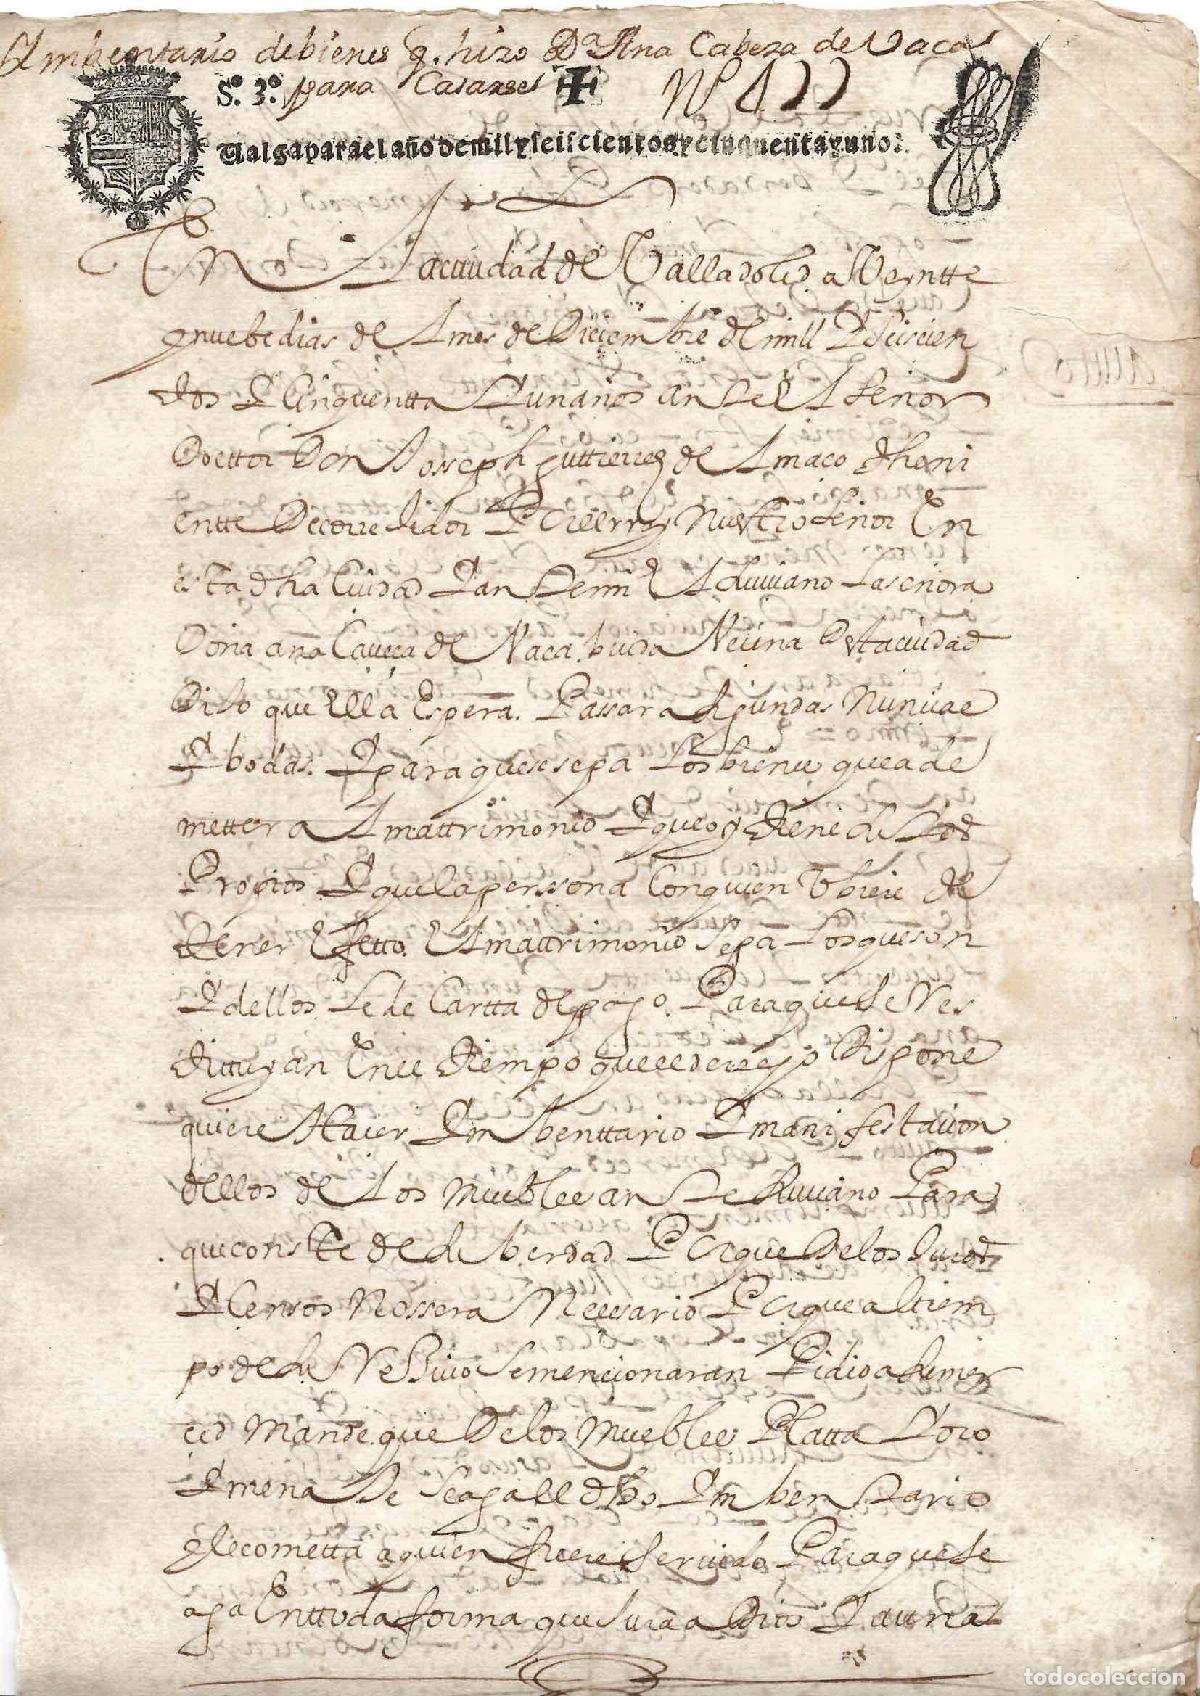 Ymbentario de bienes q. hizo Da Ana Cabeza de Vaca
So. 3o. para Casarse Nº 4))
Valga para el año de mil y seiscientos y cinquenta y uno.
En La ciudad de Valladolid a Veyntte
y nuebe dias de L mes de Diciembre de mill y seiscien
tos y cinquentta y un años ante el señor
Doctor Don Josseph guttierrez de L maco theni
entte De correxidor Por el rrey Nuestro señor En
esta dha ciudad y ante mi el scriuano La señora
Doña ana Caueça de Vaca biuda Vecina De esta ciudad
Dijo que ella Espera Passar a segundas Nuncias
y bodas. y para que se sepa Los bienes que a de
metter a L mattrimonio y que oy tiene
Propios y que la perssona Con quien Vbiere de
tener Efetto el mattrimonio sepa Los que son
y dellos le de Cartta de pago. Para que se Res
dittuyan En el tiempo que el derecho dispone
quiere Hacer Ynbenttario y manifestacion
dellos de Los muebles ante scriuano Para
que conste de su berdad Porque De los
y Censos No ssera Necessario Porque al tiem
po de su Recivo se mencionaran Pidio a su mer
ced Mande que De los muebles Platta y oro
y mena Je se aga el dho Ynbentario
y lo cometta a quien fuere seruido Para que se
aga En ttoda forma que
todocoleccion